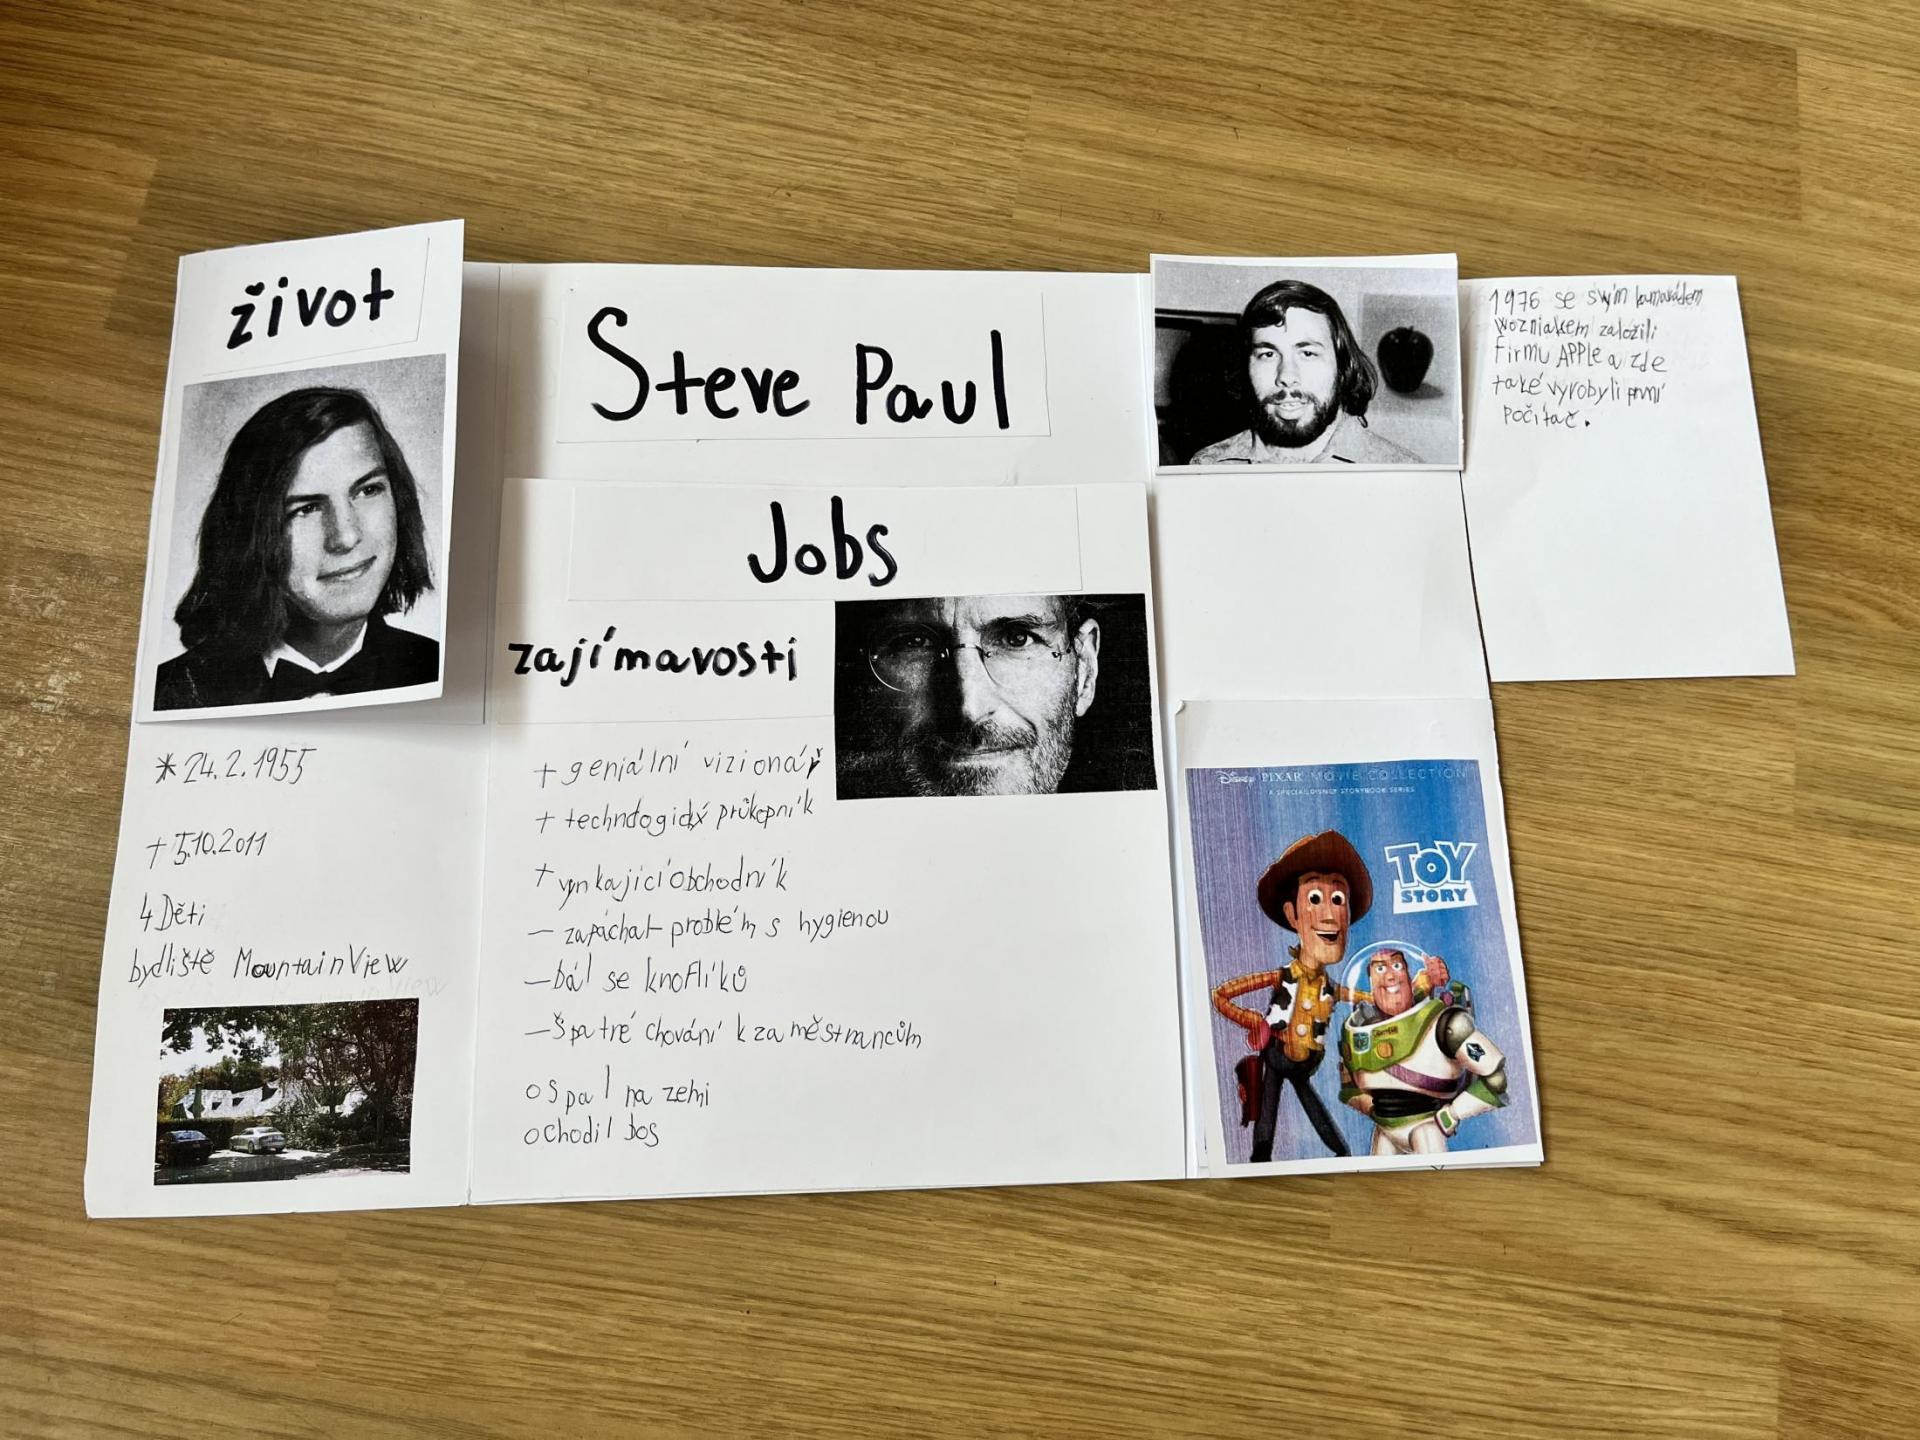 život
* 24.2.1955
† 5.10.2011
4 Děti
bydliště Mountain View
Steve Paul
Jobs
zajímavosti
+ geniální vizionář
+ technologický průkopník
+ vynkající obchodník
- zapáchal problém s hygienou
- bál se knoflíků
- Špatné chování k zaměstnancům
o spal na zemi
o chodil bos
1976 se svým kamarádem
wozniakem založili
Firmu APPle a zde
také vyrobyli první
počítač.
Disney PIXAR MOVIE COLLECTION
A SPECIAL DISNEY STORYBOOK SERIES
TOY
STORY